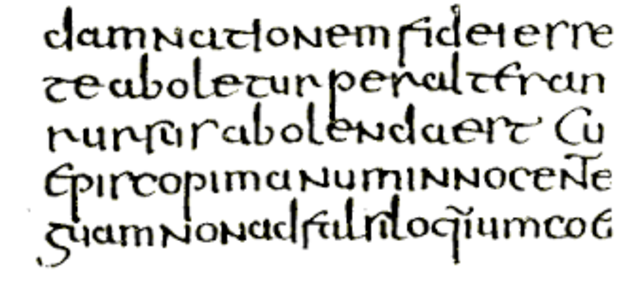 damnationem fidei esse
te aboletur per
rursus abolenda est Cu
Episcopi manum innocente
guam non ad falsiloq̃ium coe